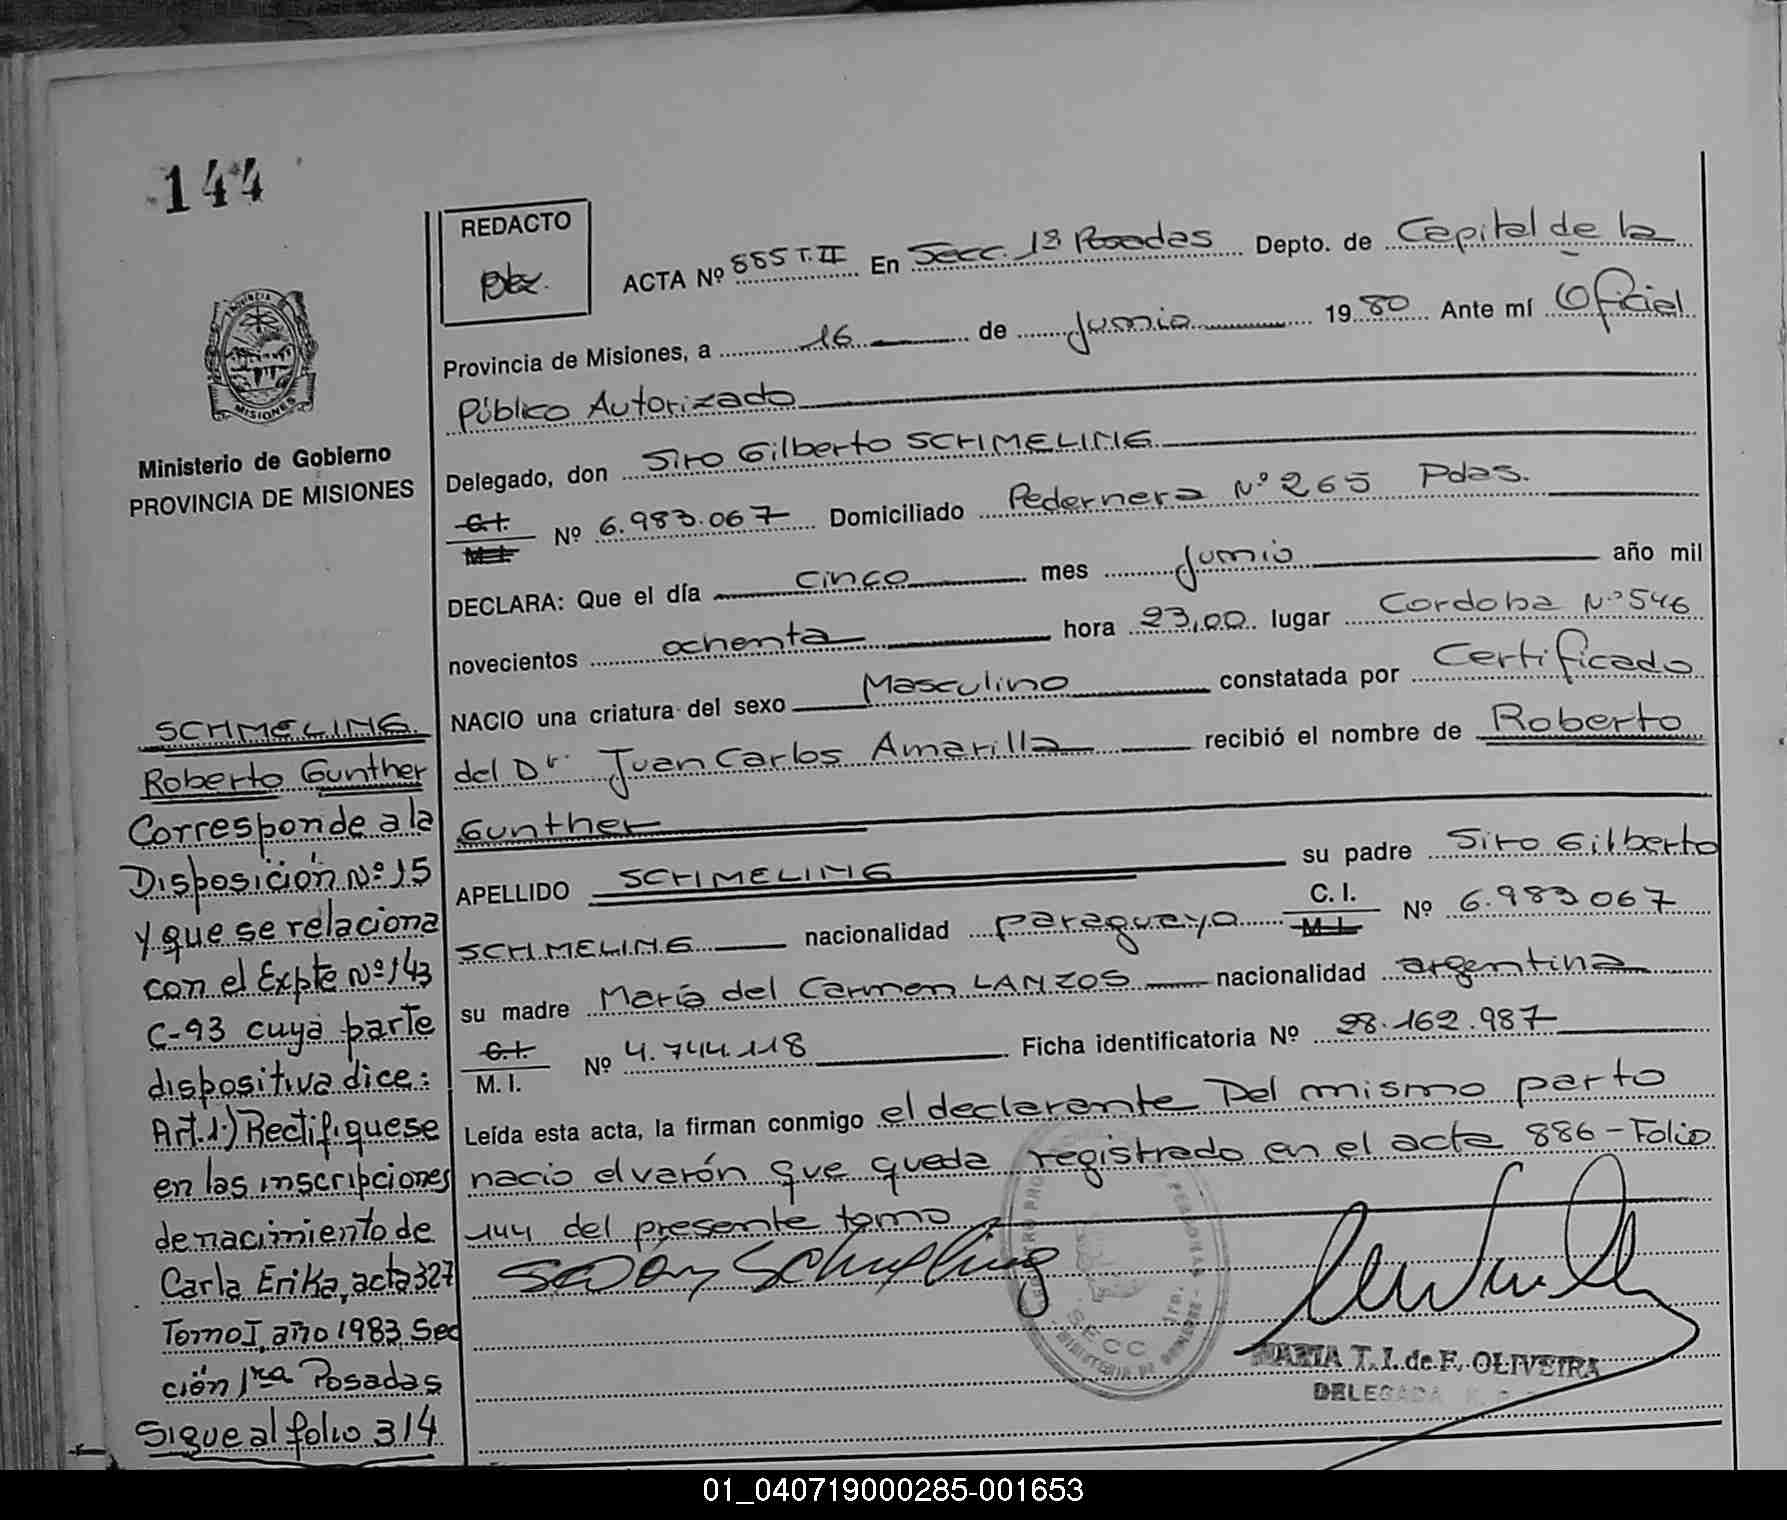 144
PROVINCIA
MISIONES
Ministerio de Gobierno
PROVINCIA DE MISIONES
SCHMELING
Roberto Gunther
Corresponde a la
Disposición Nº 15
y que se relaciona
con el Expte Nº 143
C-93 cuya parte
dispositiva dice:
Art. 1º) Rectifiquese
en las inscripciones
de nacimiento de
Carla Erika, acta 327
Tomo I, año 1983, Sec
ción 1ra Posadas
Sigue al folio 314
REDACTO
ACTA Nº 885 T. II En Secc. 1ª Posadas Depto. de Capital de la
Provincia de Misiones, a 16 de Junio 1980 Ante mí Oficial
Público Autorizado
Delegado, don Siro Gilberto SCHMELING
C.I. M.I. Nº 6.983.067 Domiciliado Pedernera Nº 265 Pdas.
DECLARA: Que el día cinco mes Junio año mil
novecientos ochenta hora 23,00 lugar Cordoba Nº 546
NACIO una criatura del sexo Masculino constatada por Certificado
del Dr. Juan Carlos Amarilla recibió el nombre de Roberto
Gunther
APELLIDO SCHMELING su padre Siro Gilberto
SCHMELING nacionalidad paraguaya C. I. M.I. Nº 6.983.067
su madre María del Carmen LANZOS nacionalidad argentina
C.I. M. I. Nº 4.744.118 Ficha identificatoria Nº 28.162.987
Leída esta acta, la firman conmigo el declarante Del mismo parto
nacio el varón que queda registrado en el acta 886 - Folio
144 del presente tomo
SECC
MARIA T. I. de F. OLIVEIRA
DELEGADA
01_040719000285-001653